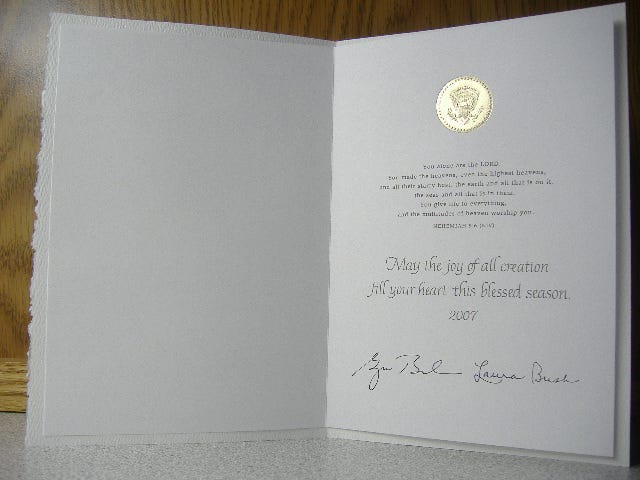 You alone are the LORD.
You made the heavens, even the highest heavens,
and all their starry host, the earth and all that is on it,
the seas and all that is in them.
You give life to everything,
and the multitudes of heaven worship you.
NEHEMIAH 9:6 (NIV)
May the joy of all creation
fill your heart this blessed season.
2007
Laura Bush